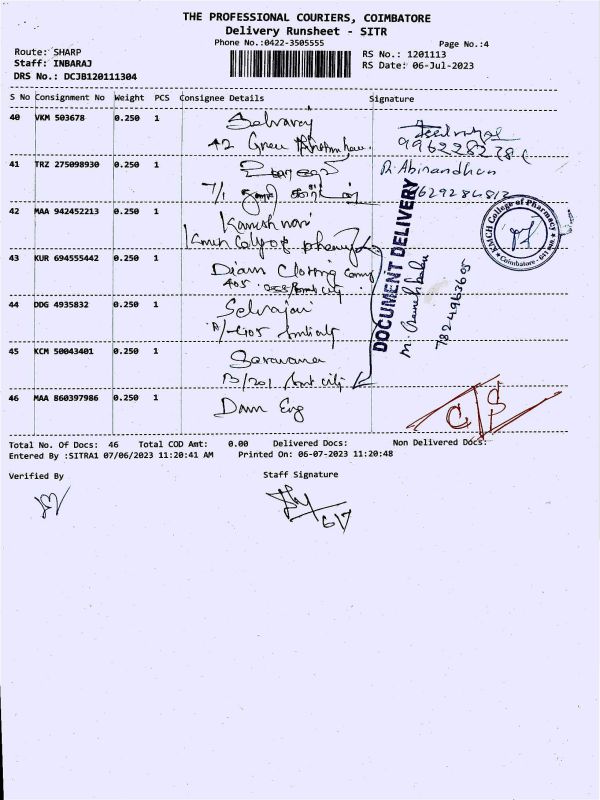 THE PROFESSIONAL COURIERS, COIMBATORE
Delivery Runsheet - SITR
Phone No.:0422-3505555
Page No.:4
Route: SHARP
RS No.: 1201113
Staff: INBARAJ
RS Date: 06-Jul-2023
DRS No.: DCJB120111304
S No Consignment No Weight PCS Consignee Details Signature
40 VKM 503678 0.250 1 Selvaraj
42
41 TRZ 275098930 0.250 1
7/1
R. Abinandhan
42 MAA 942452213 0.250 1 Kamesh
kmch College of pharmacy
43 KUR 694555442 0.250 1 Diam
405
44 DDG 4935832 0.250 1 Selvajan
A/-405
45 KCM 50043401 0.250 1 Saravana
B/201 city
46 MAA 860397986 0.250 1 Dam Eng
DOCUMENT DELIVERY
7824963605
KMCH College of Pharmacy
Coimbatore - 641 048
C/S
Total No. Of Docs: 46 Total COD Amt: 0.00 Delivered Docs: Non Delivered Docs:
Entered By :SITRA1 07/06/2023 11:20:41 AM Printed On: 06-07-2023 11:20:48
Verified By
Staff Signature
6/7